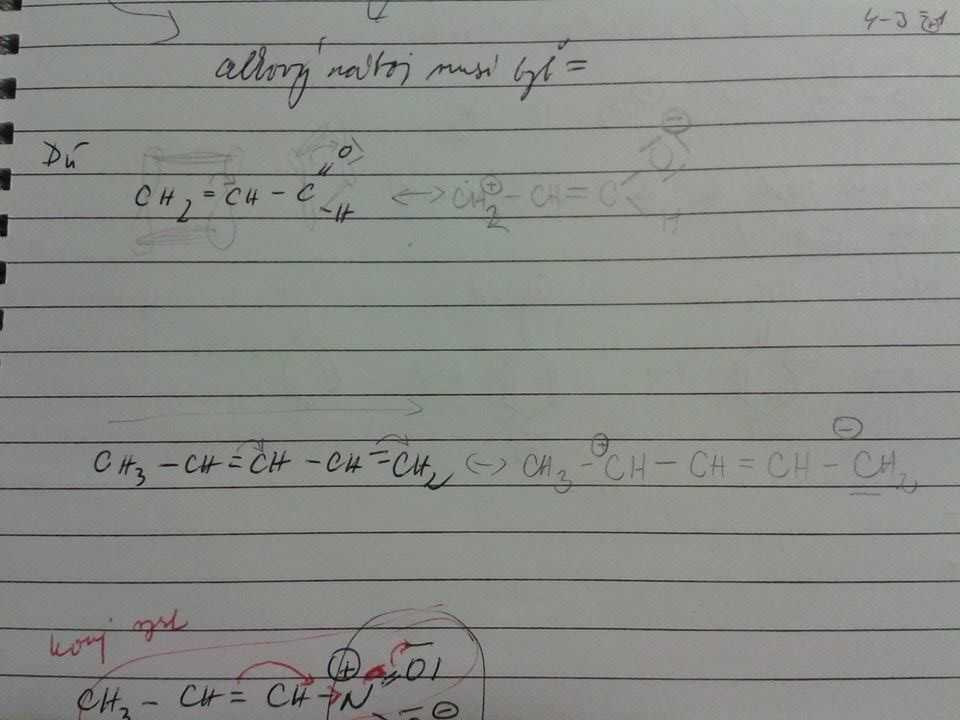 4-5 
celkový náboj musí být =
DÚ
CH2 = CH - C O H ↔ CH2 ⊕ - CH = C O ⊖ H
CH3 - CH = CH - CH = CH2 ↔ CH3 - ⊕ CH - CH = CH - CH2 ⊖
konj syst
CH3 - CH = CH - N ⊕ = O ⊖